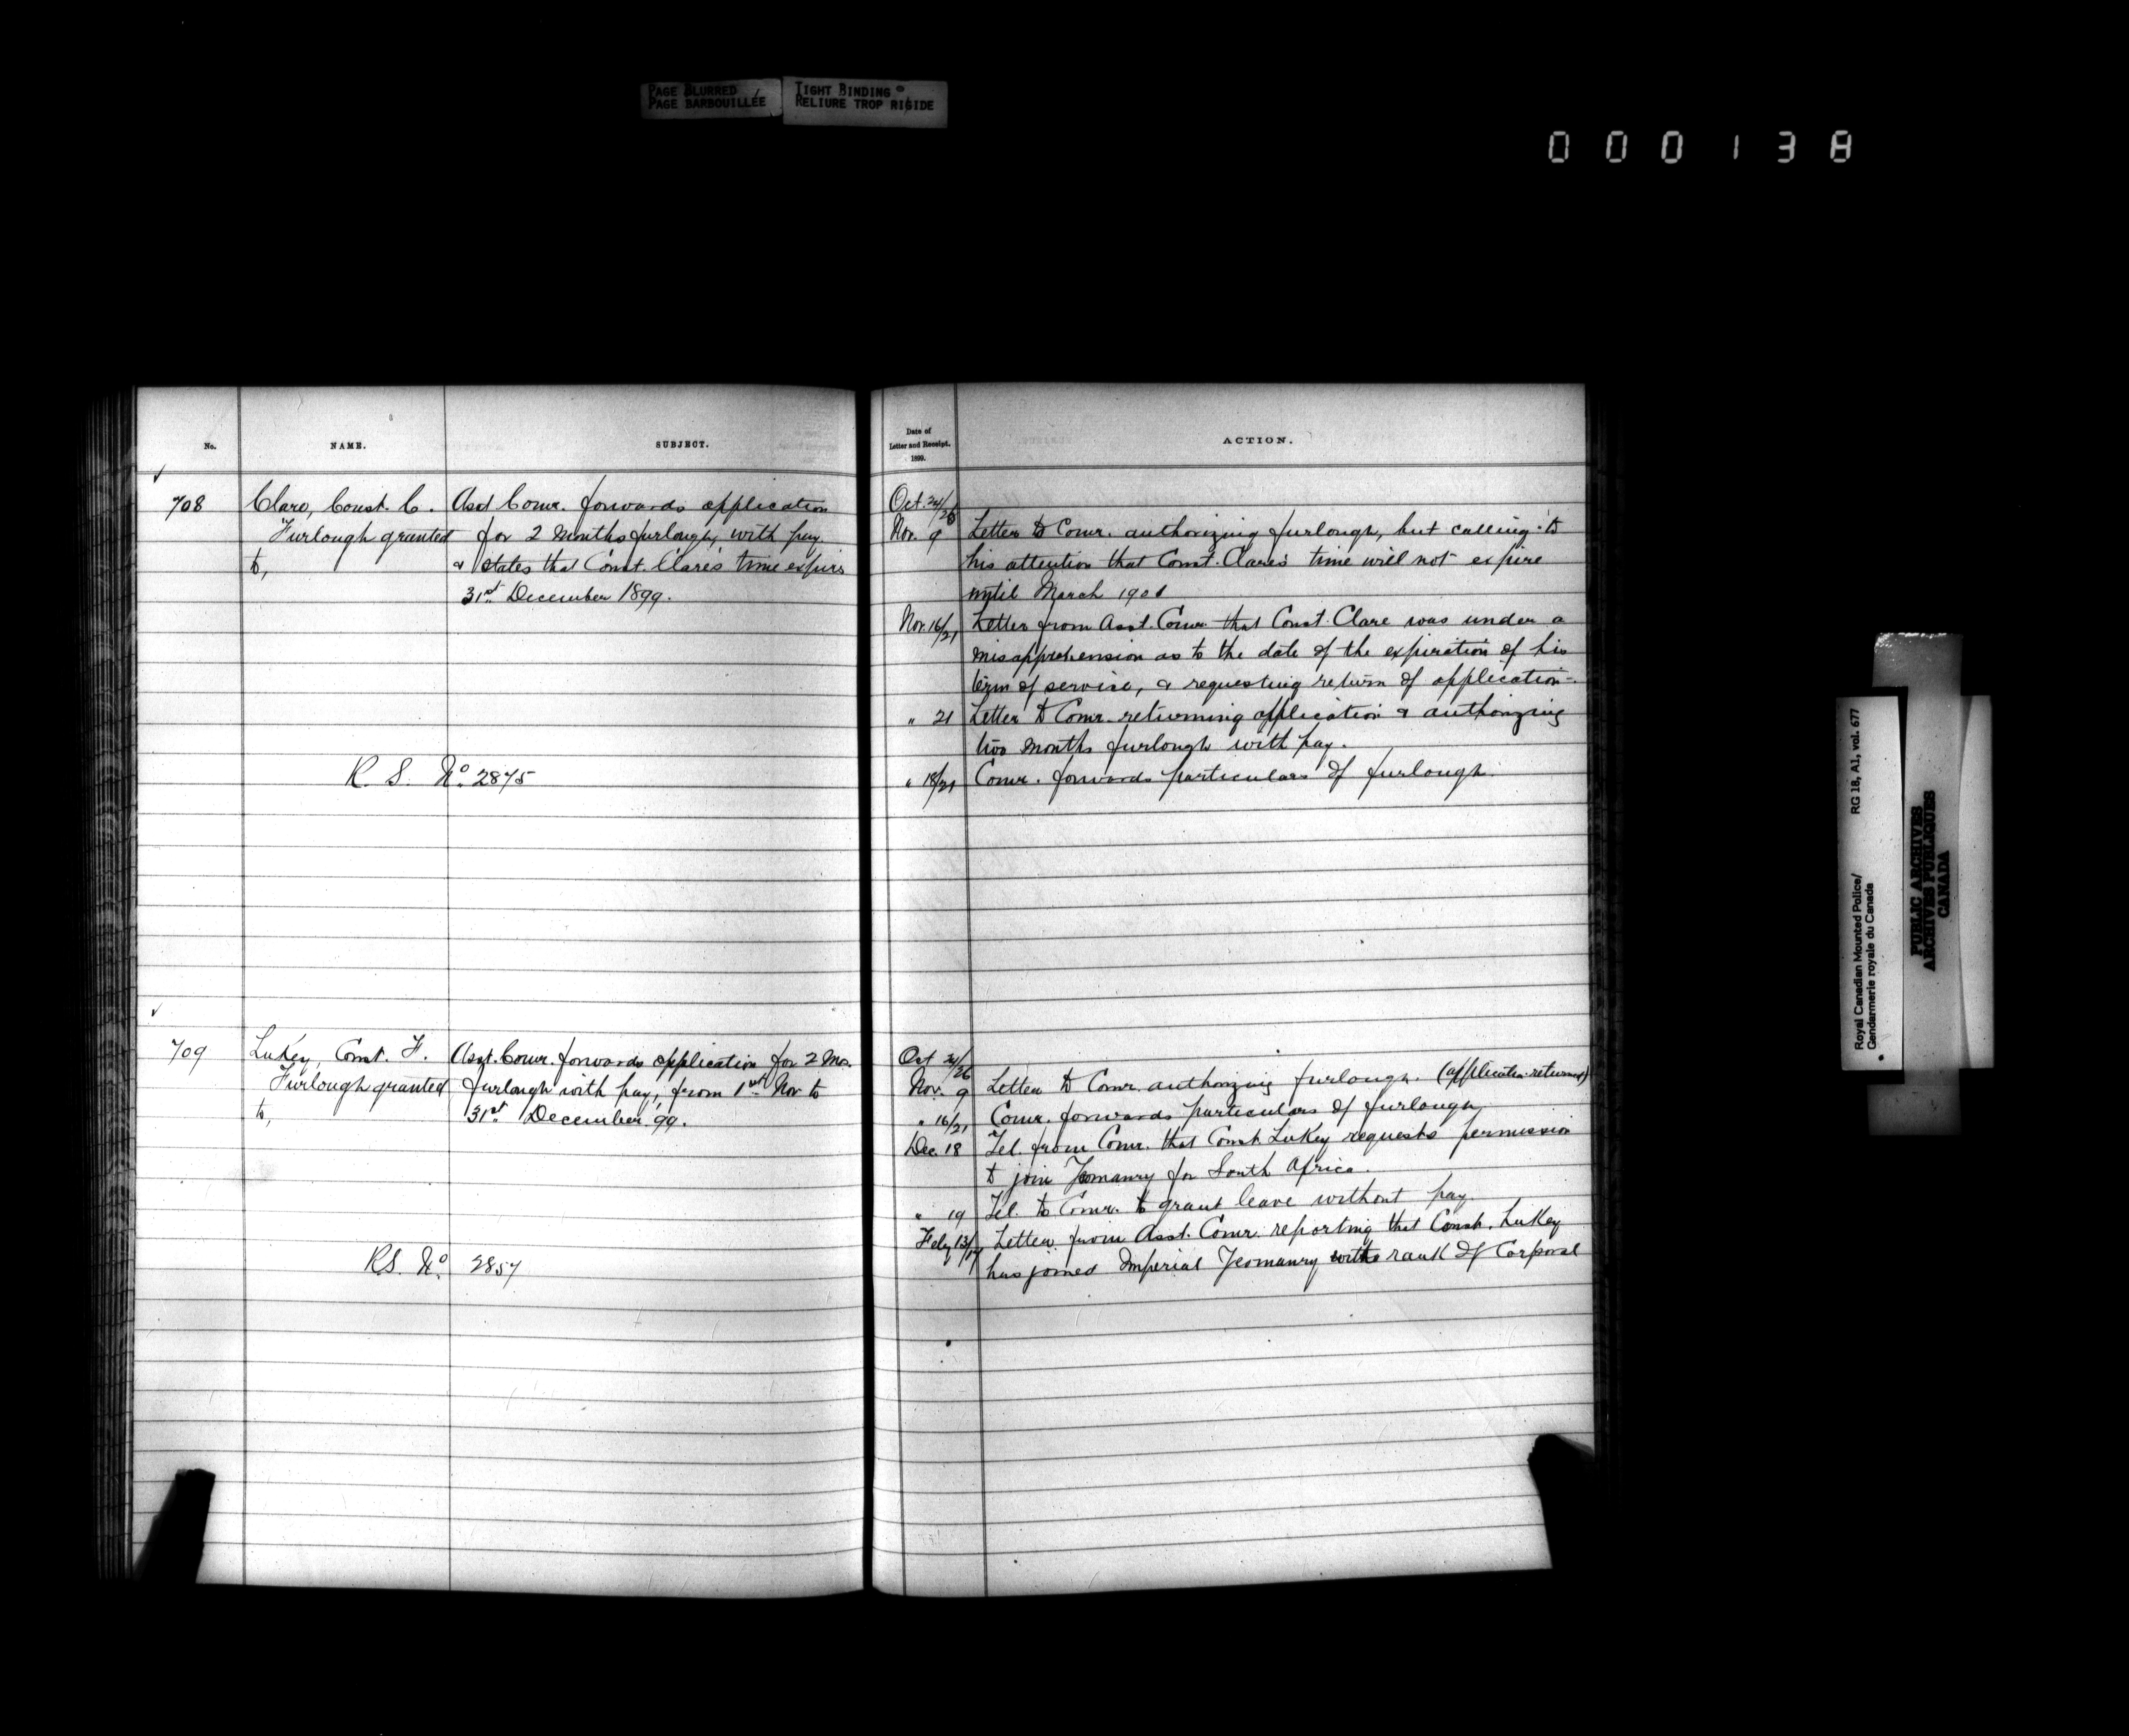 PAGE BLURRED
PAGE BARBOUILLÉE
TIGHT BINDING
RELIURE TROP RIGIDE
000138
No.
NAME.
SUBJECT.
708
Clare, Const. C.
Furlough granted
to,
Asst Comr. forwards application
for 2 months furlough, with pay
& states that Const. Clare's time expires
31st December 1899.
R. S. No. 2875
709
Lukey, Const. F.
Furlough granted
to,
Asst. Comr. forwards application for 2 Mos.
furlough with pay, from 1st Nov to
31st December '99.
RS. No. 2857
Date of
Letter and Receipt.
1899.
ACTION.
Oct. 24/26
Nov. 9 Letter to Comr. authorizing furlough, but calling to
his attention that Const. Clare's time will not expire
until March 1901
Nov. 16/21 Letter from Asst. Comr. that Const. Clare was under a
misapprehension as to the date of the expiration of his
term of service, & requesting return of application.
" 21 Letter to Comr. returning application & authorizing
two months furlough with pay.
" 18/21 Comr. forwards particulars of furlough.
Oct 24/26
Nov. 9 Letter to Comr. authorizing furlough. (application returned)
" 16/21 Comr. forwards particulars of furlough
Dec. 18 Tel. from Comr. that Const. Lukey requests permission
to join Yeomanry for South Africa.
" 19 Tel. to Comr. to grant leave without pay.
Feby 13/17 Letter from Asst. Comr. reporting that Const. Lukey
has joined Imperial Yeomanry with rank of Corporal
Royal Canadian Mounted Police/
Gendarmerie royale du Canada
RG 18, A1, vol. 677
PUBLIC ARCHIVES
ARCHIVES PUBLIQUES
CANADA